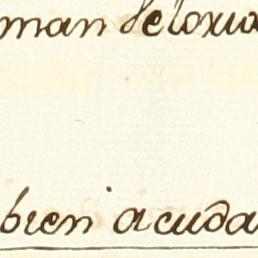 man Seloxia
bien acuda